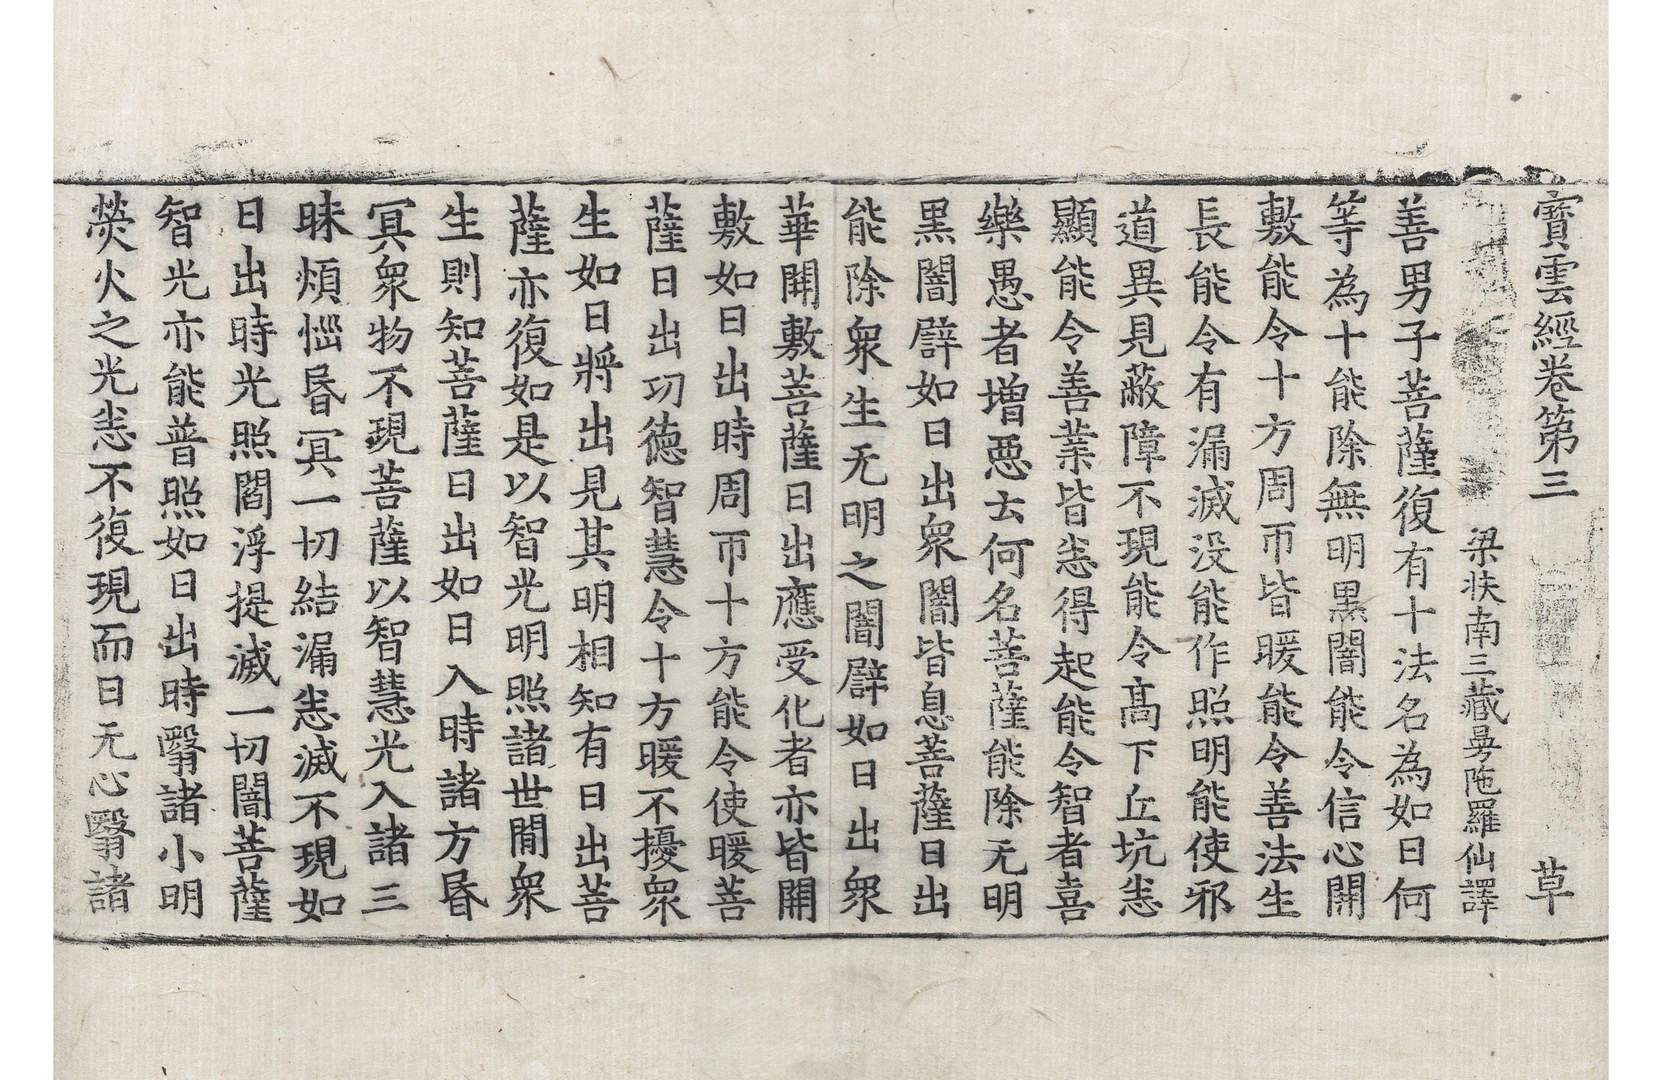 寳雲經卷第三 草
梁扶南三藏曼陁羅仙譯
善男子菩薩復有十法名為如日何
等為十能除無明黑闇能令信心開
敷能令十方周帀皆暖能令善法生
長能令有漏滅没能作照明能使邪
道異見蔽障不現能令髙下丘坑恙
顯能令善業皆恙得起能令智者喜
樂愚者増惡云何名菩薩能除无明
黒闇譬如日出衆闇皆息菩薩日出
能除衆生无明之闇譬如日出衆
華開敷菩薩日出應受化者亦皆開
敷如日出時周帀十方能令使暖菩
薩日出功德智慧令十方暖不擾衆
生如日將出見其明相知有日出菩
薩亦復如是以智光明照諸世間衆
生則知菩薩日出如日入時諸方昏
冥衆物不現菩薩以智慧光入諸三
昧煩惱昏冥一切結漏恙滅不現如
日出時光照閻浮提滅一切闇菩薩
智光亦能普照如日出時翳諸小明
熒火之光恙不復現而日无心翳諸